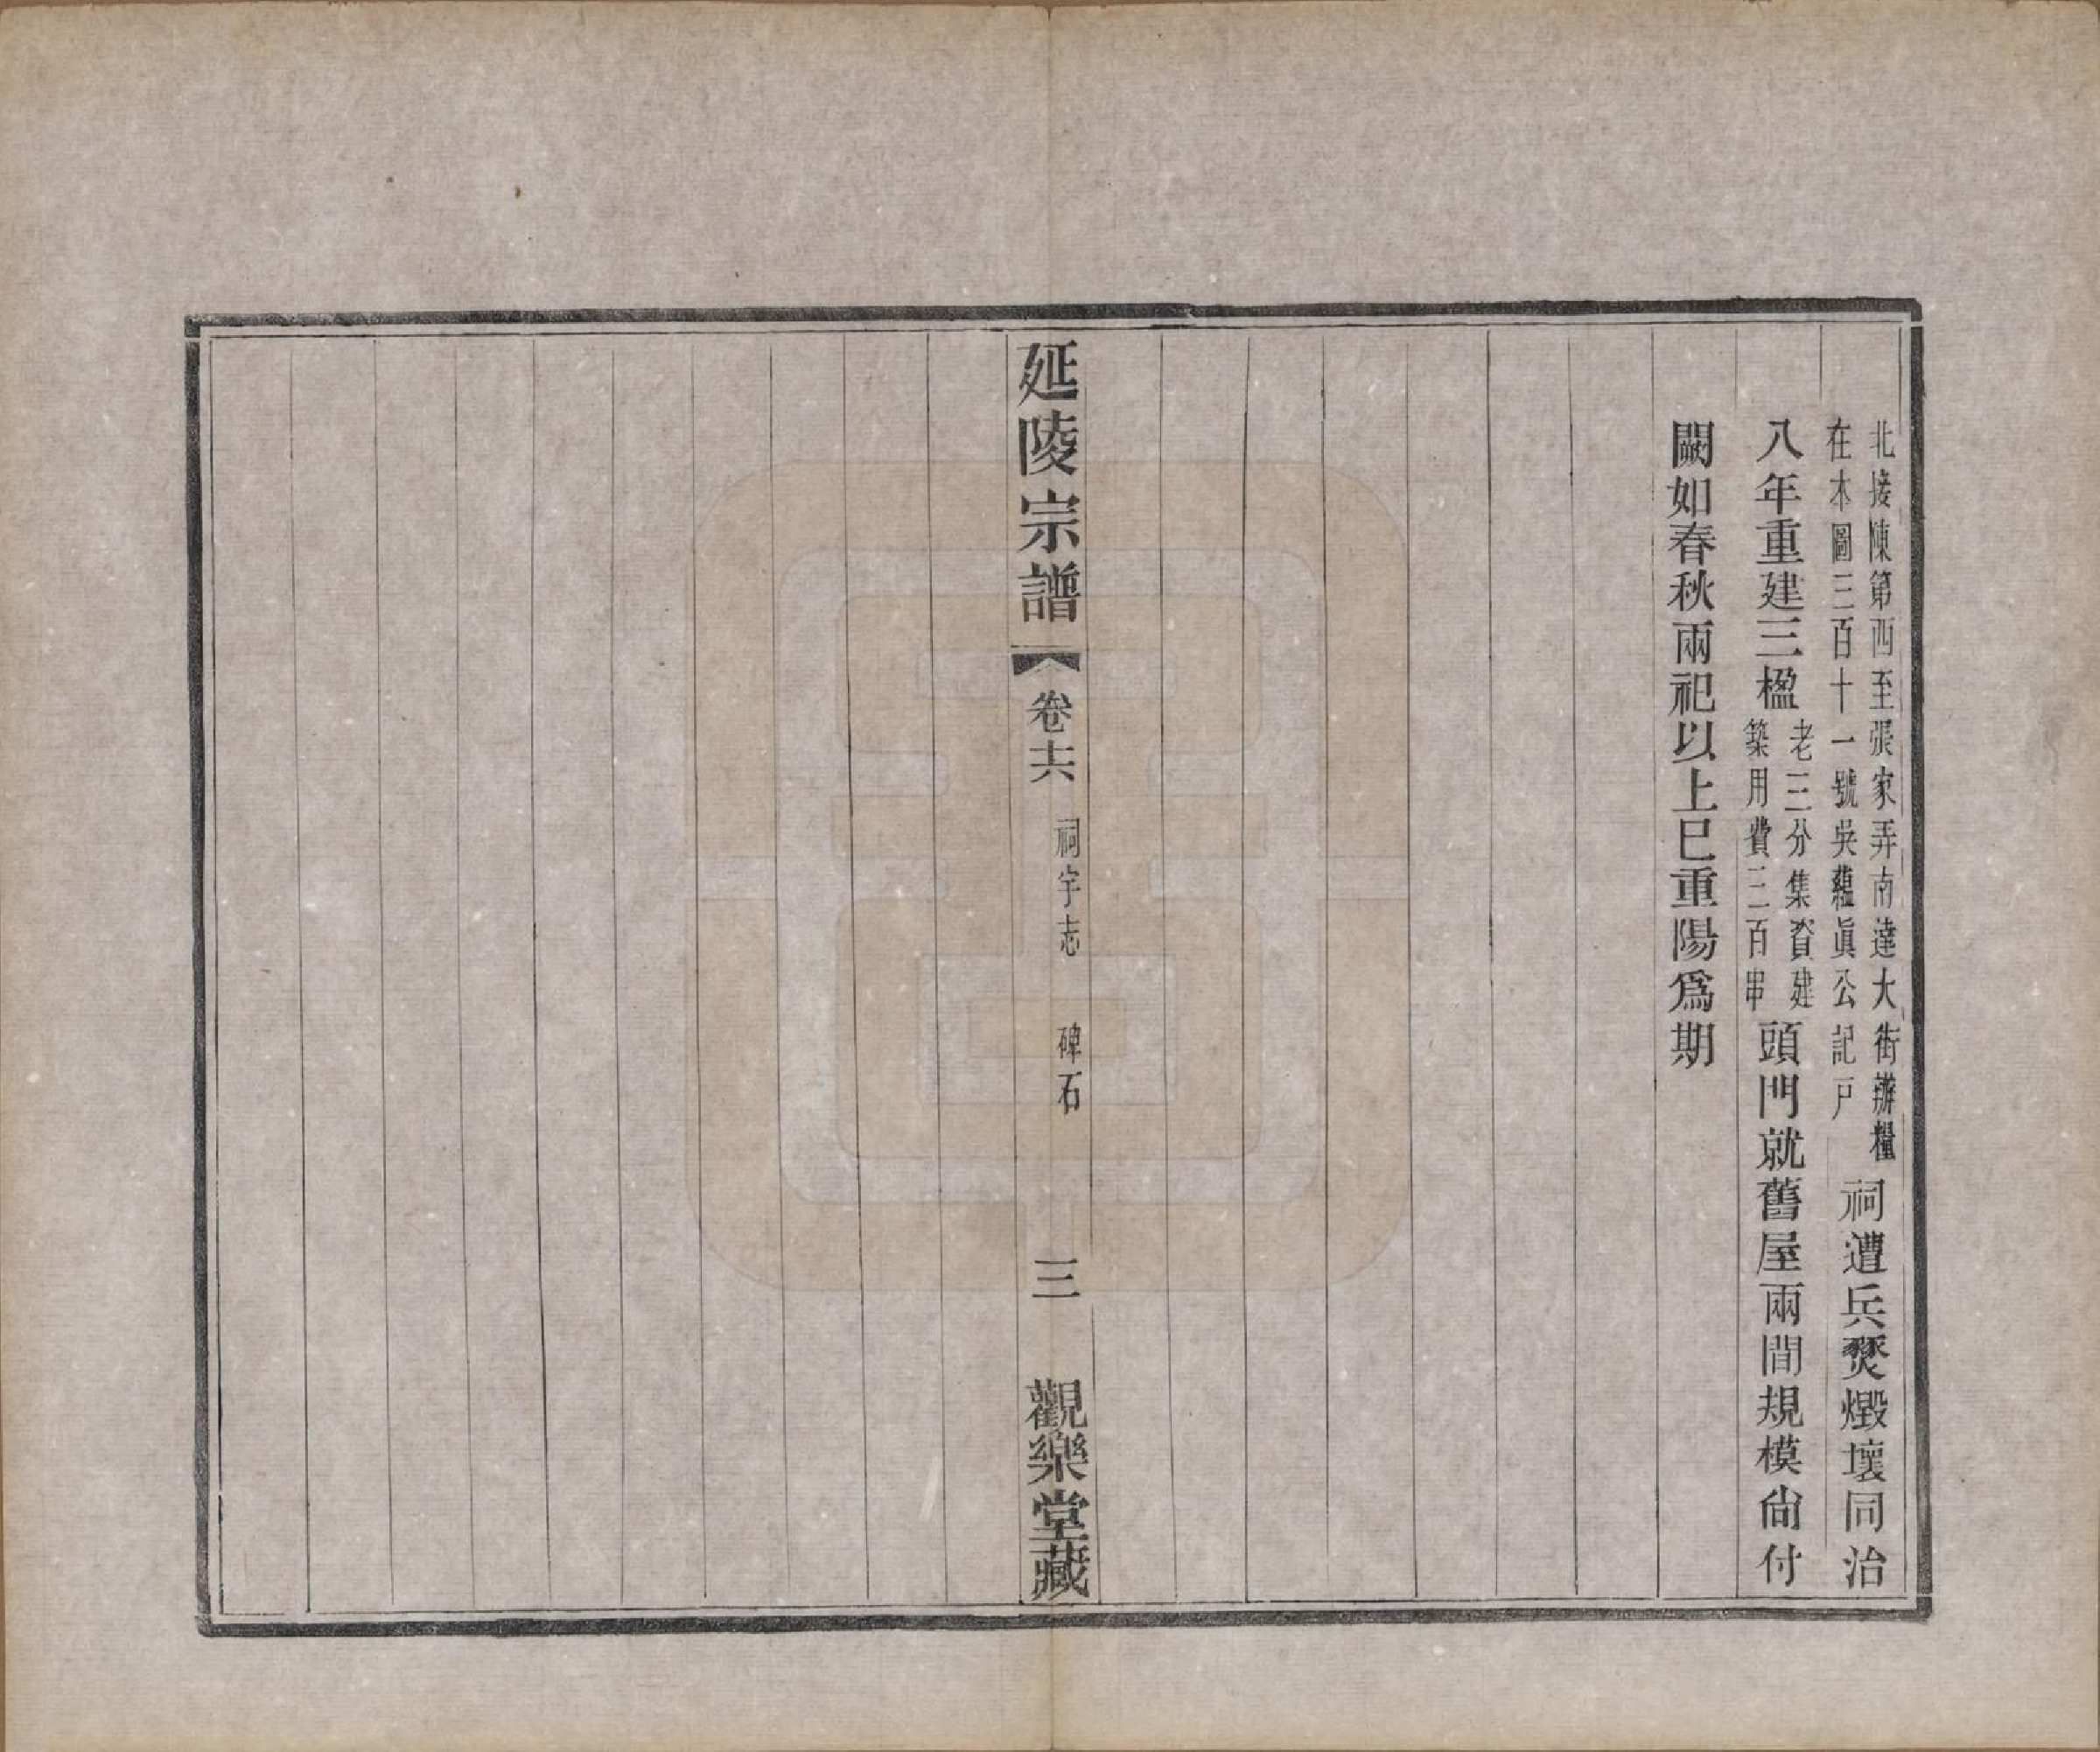 北接陳第西至張家弄南達大街辦糧
在本圖三百十一號吳蘊眞公記戸
祠遭兵燹燬壞同治
八年重建三楹
老三分集資建
築用費三百串
頭門就舊屋兩間規模尙付
闕如春秋兩祀以上巳重陽爲期
延陵宗譜
卷十六
祠宇志 碑石
三
觀樂堂藏